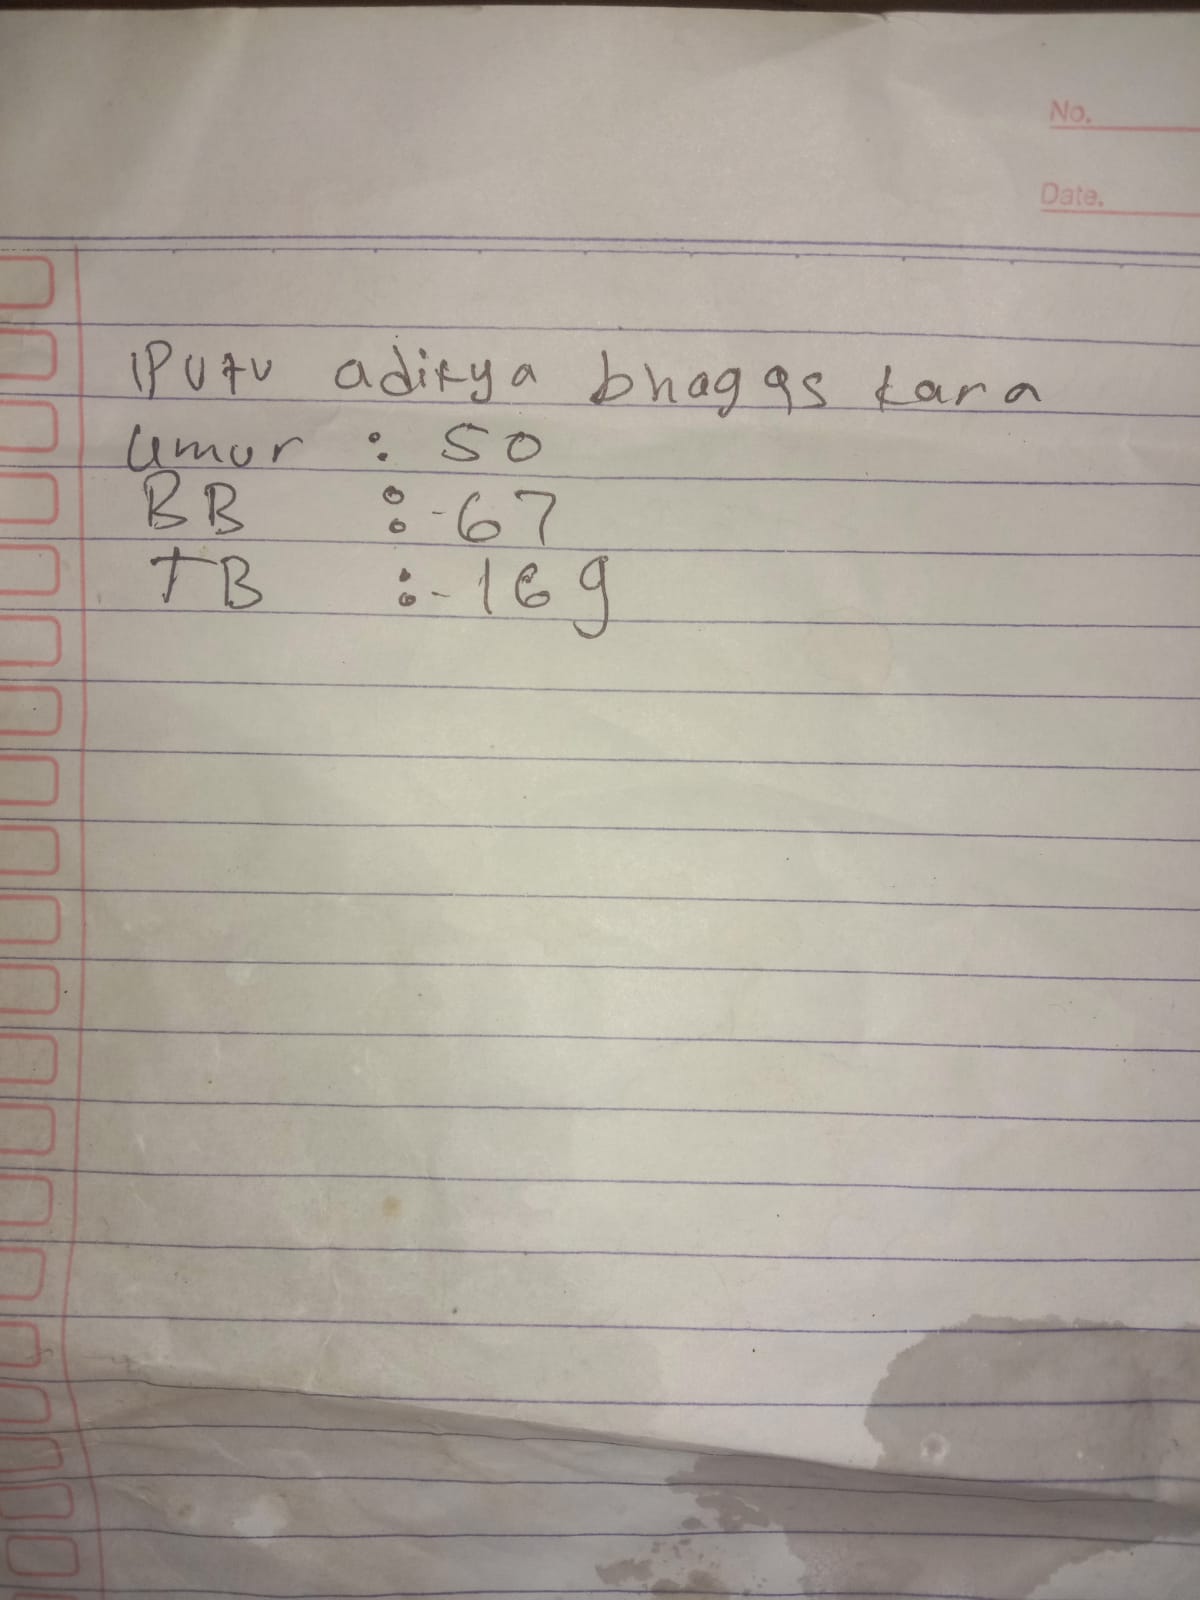 No.
Date.
IPUTU aditya bhagas kara
Umur : 50
BB :-67
TB :-169